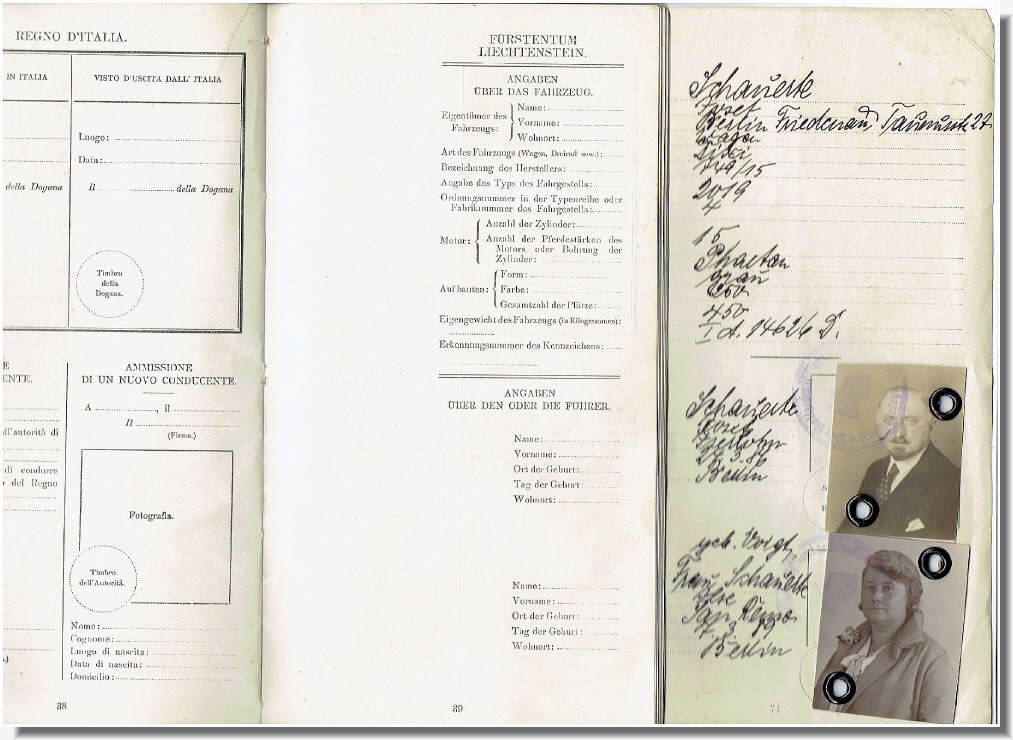 REGNO D'ITALIA.
IN ITALIA
VISTO D'USCITA DALL' ITALIA
Luogo:
Data:
della Dogana
Il della Dogana
Timbro
della
Dogana.
E
ENTE.
AMMISSIONE
DI UN NUOVO CONDUCENTE.
A , il
Il
(Firma.)
dll'autorità di
di condurre
del Regno
Fotografia.
Timbro
dell'Autorità.
Nome:
Cognome:
Luogo di nascita:
Data di nascita:
Domicilio:
.)
38
FÜRSTENTUM
LIECHTENSTEIN.
ANGABEN
ÜBER DAS FAHRZEUG.
Eigentümer des Fahrzeugs:
Name:
Vorname:
Wohnort:
Art des Fahrzeugs (Wagen, Dreirad usw.):
Bezeichnung des Herstellers:
Angabe des Typs des Fahrgestells:
Ordnungsnummer in der Typenreihe oder
Fabriknummer des Fahrgestells:
Motor:
Anzahl der Zylinder:
Anzahl der Pferdestärken des
Motors oder Bohrung der
Zylinder:
Aufbauten:
Form:
Farbe:
Gesamtzahl der Plätze:
Eigengewicht des Fahrzeugs (in Kilogrammen):
Erkennungsnummer des Kennzeichens:
ANGABEN
ÜBER DEN ODER DIE FÜHRER.
Name:
Vorname:
Ort der Geburt:
Tag der Geburt
Wohnort:
Name:
Vorname:
Ort der Geburt:
Tag der Geburt:
Wohnort:
39
Schauerte
Josef
Berlin Friedenau, 27
Wagen
/15
2019
4
15
Phaeton
grau
450
I A. 14626 D.
Schauerte
Josef
Iserlohn
Berlin
geb. Voigt,
Frau Schauerte
Berlin
71